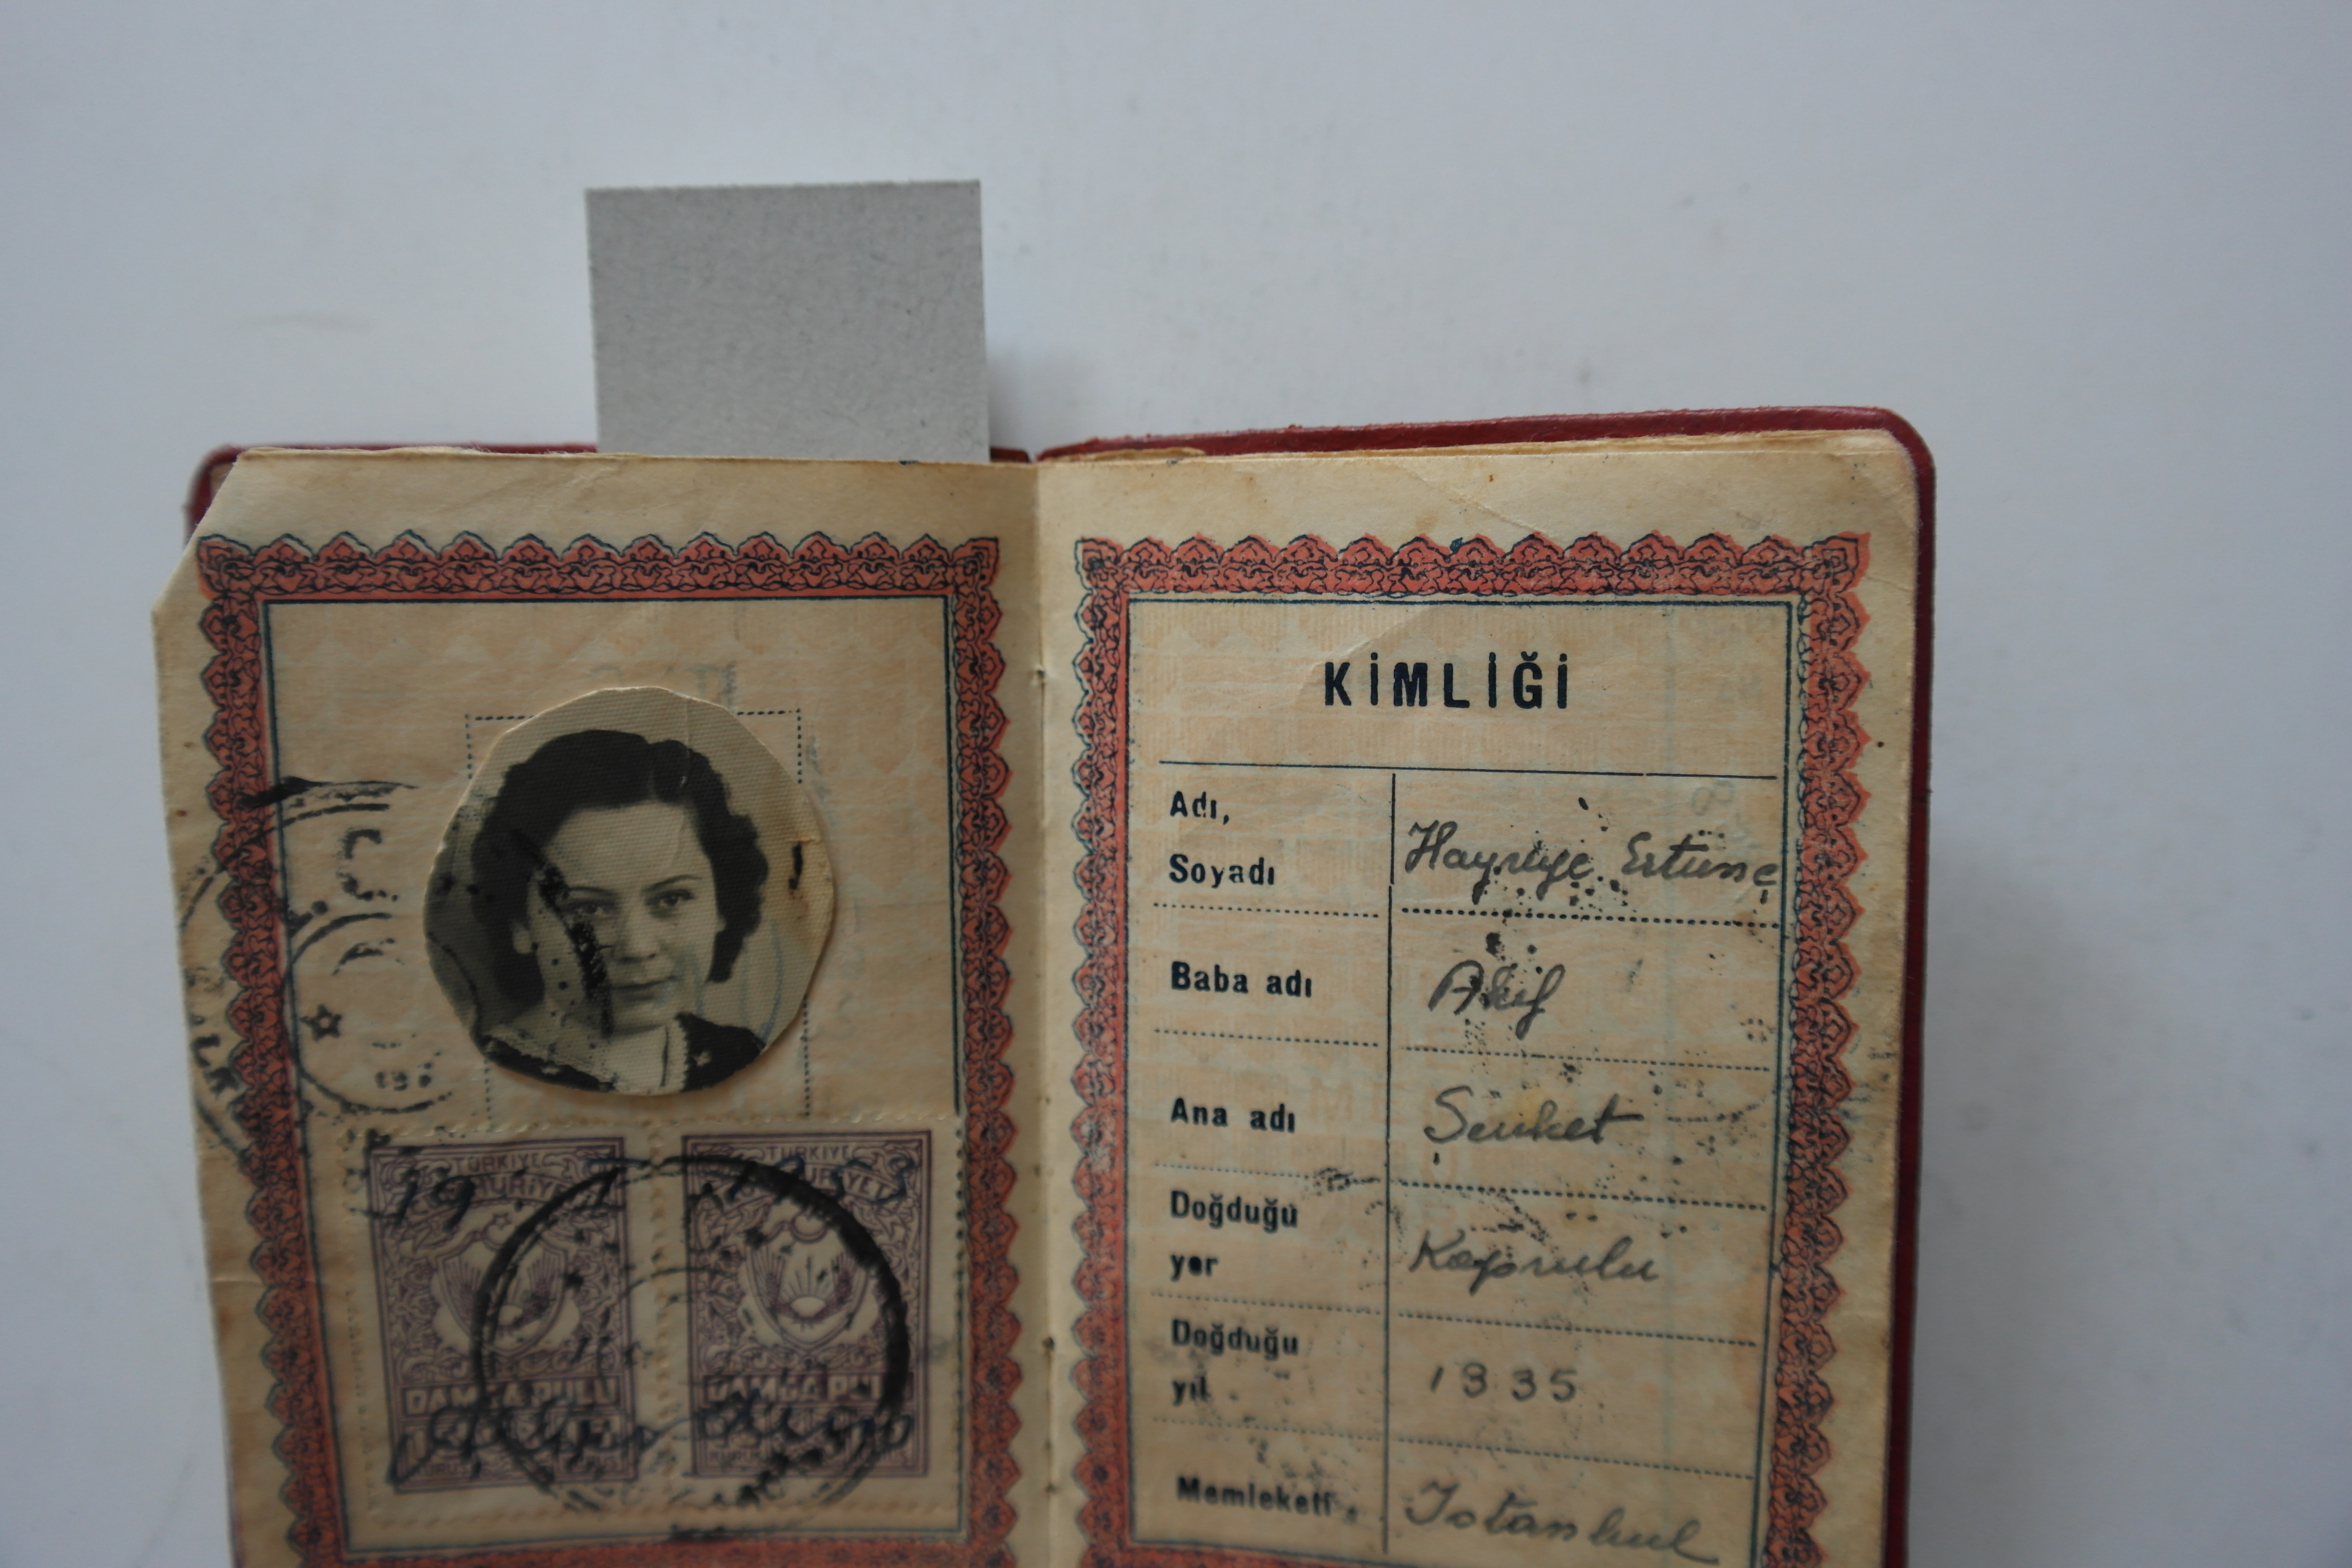 19 1 1953
TÜRKİYE
CUMHURİYETİ
DAMGA PULU
TÜRKİYE
CUMHURİYETİ
DAMGA PULU
KİMLİĞİ
Adı,
Soyadı
Hayriye Ertunç
Baba adı
Akif
Ana adı
Şevket
Doğduğu
yer
Köprülü
Doğduğu
yıl
1335
Memleketi
İstanbul